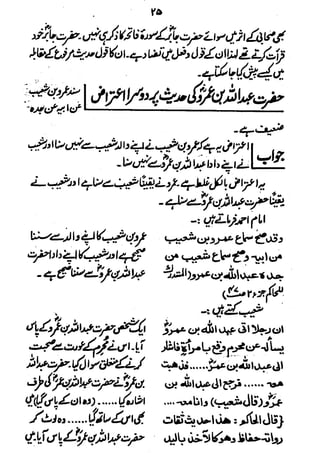 ۲۵
بھی صحابی کے اثر میں سوائے حضرت جابرؓ کے سورۃ فاتحہ کا ذکر ہی نہیں۔ حضرت جابرؓ خود
قرأت کرتے تھے لہذا ان کے قول و فعل میں تضاد ہے۔ ان کا قول حدیث مرفوع کے مقابلہ
میں کیسے پیش کیا جاسکتا ہے۔
حضرت عبداللہ بن عمروؓ کی حدیث پر دوسرا اعتراض
سند عمرو بن شعیب
عن ابیہ عن جدہ
ضعیف ہے۔
جواب
اعتراض یہ ہے کہ عمرو بن شعیب نے اپنے والد شعیب سے نہیں سنا اور شعیب
نے اپنے دادا عبداللہ بن عمروؓ سے نہیں سنا۔
یہ اعتراض بالکل غلط ہے۔ عمرو نے یقیناً شعیب سے سنا ہے اور شعیب نے
یقیناً حضرت عبداللہ بن عمروؓ سے سنا ہے۔
امام احمد فرماتے ہیں:۔
وقد صح سماع عمرو بن شعیب
من ابیہ وصح سماع شعیب من
جدہ عبد اللہ بن عمرو (المستدرک
للحاکم جزو ۲ صـ ۴۷)
عمرو بن شعیب کا اپنے والد سے سننا
صحیح ہے اور شعیب کا اپنے دادا حضرت
عبداللہ بن عمروؓ سے سننا صحیح ہے۔
شعیب کہتے ہیں:۔
ان رجلا اتی عبد اللہ بن عمروؓ
یسألہ عن محرم وقع بامرأۃ فاشار
الی عبد اللہ بن عمرؓ ...... فذہبت
معہ ...... فرجع الی عبد اللہ بن
عمروؓ (وقال) وانا معہ ......
(قال الحاکم: ھذا حدیث ثقات
رواتہ حفاظ وھو کالآخذ بالید
ایک شخص حضرت عبداللہ بن عمروؓ کے پاس
آیا۔ اس نے محرم کے عورت سے صحبت
کرنے کے متعلق سوال کیا۔ حضرت عبداللہ
بن عمروؓ نے حضرت عبداللہ بن عمرؓ کی طرف
اشارہ کیا...... (وہ ان کے پاس گیا) میں
بھی اس کے ساتھ گیا...... وہ لوٹ کر
حضرت عبداللہ بن عمروؓ کے پاس آیا میں